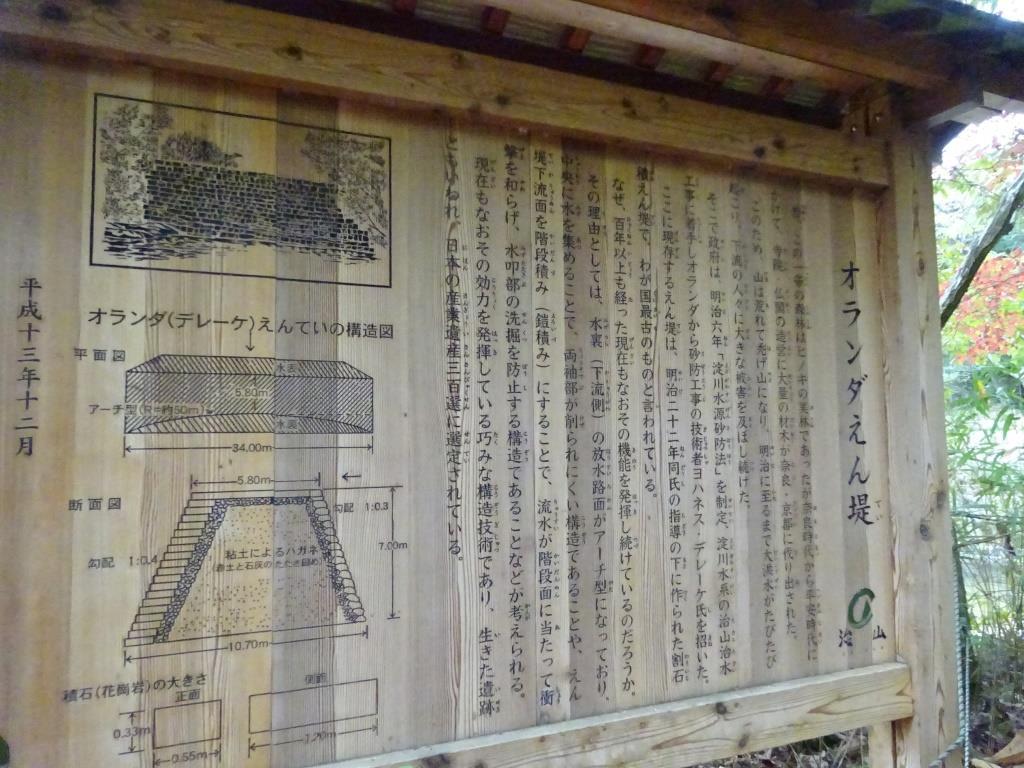 オランダえん堤
治山
昔、この一帯の森林はヒノキの美林であったが奈良時代から平安時代に
かけて、寺院、仏閣の造営に大量の材木が奈良・京都に伐り出された。
このため、山は荒れて禿げ山になり、明治に至るまで大洪水がたびたび
起こり、下流の人々に大きな被害を及ぼし続けた。
そこで政府は、明治六年「淀川水源砂防法」を制定、淀川水系の治山治水
工事に着手しオランダから砂防工事の技術者ヨハネス・デレーケ氏を招いた。
ここに現存するえん堤は、明治二十二年同氏の指導の下に作られた割石
積えん堤で、わが国最古のものと言われている。
なぜ、百年以上も経った現在もなおその機能を発揮し続けているのだろうか。
その理由としては、水裏(下流側)の放水路面がアーチ型になっており、
中央に水を集めることで、両袖部が削られにくい構造であることや、えん
堤下流面を階段積み(鎧積み)にすることで、流水が階段面に当たって衝
撃を和らげ、水叩部の洗掘を防止する構造であることなどが考えられる。
現在もなおその効力を発揮している巧みな構造技術であり、生きた遺跡
ともいわれ、日本の産業遺産三百選に選定されている。
オランダ(デレーケ)えんていの構造図
平面図
水表
5.80m
アーチ型(R=約50m)
水裏
34.00m
断面図
5.80m
勾配 1:0.3
勾配 1:0.4
7.00m
粘土によるハガネ
(赤土と石灰のたたき固め)
10.70m
積石(花崗岩)の大きさ
正面
側面
0.33m
0.55m
1.20m
平成十三年十二月